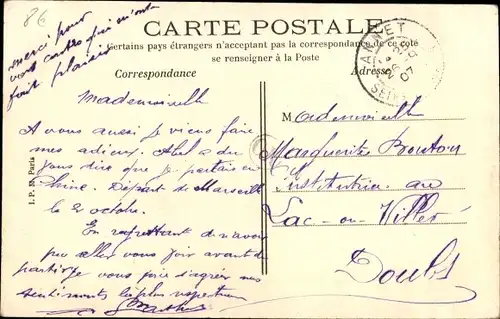 8€
merci pour
vos cartes qui m'ont
fait plaisir
CARTE POSTALE
Certains pays étrangers n'acceptent pas la correspondance de ce côté
se renseigner à la Poste
Correspondance
Adresse
LAC
SEINE
07
I. P. M. Paris
Mademoiselle
A vous aussi je viens faire
mes adieux. Abel a du
vous dire que je partais en
Chine. Départ de Marseille
le 2 octobre.
En regrettant de n'avoir
pu aller vous voir avant de
partir je vous prie d'agréer mes
sentiments les plus respectueux
Mademoiselle
Marguerite Bouton
Institutrice au
Lac-ou-Villers
Doubs